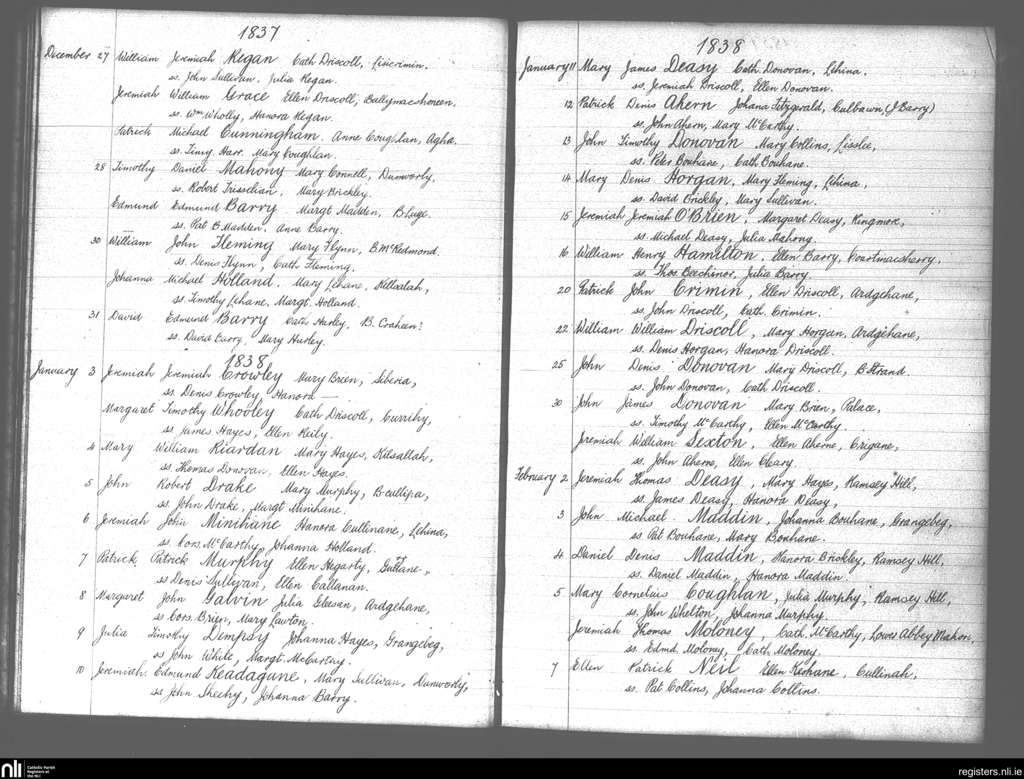 1837
December 27 William Jeremiah Regan Cath Driscoll, Liscrimin.
ss. John Sullivan. Julia Regan.
Jeremiah William Grace Ellen Driscoll, Ballymacshoneen.
ss. Wm Wholly, Hanora Regan.
Patrick Michael Cunningham. Anne Coughlan, Agha.
ss. Timy. Harr. Mary Coughlan.
28 Timothy Daniel Mahony Mary Connell, Dunworly.
ss. Robert Mary Brickley.
Edmund Edmund Barry Margt Madden, B.
ss. Pat B. Madden. Anne Barry.
30 William John Fleming Mary Flynn, B. McRedmond.
ss. Denis Flynn, Cath Fleming.
Johanna Michael Holland. Mary Lehane,
ss. Timothy Lehane. Margt. Holland.
31 David Edmund Barry Cath Hurley, B. Croheen?
ss. David Barry. Mary Hurley.
1838
January 3 Jeremiah Jeremiah Crowley Mary Breen, Siberia,
ss. Denis Crowley, Hanora —
Margaret Timothy Whooley Cath Driscoll, Currihy,
ss. James Hayes, Ellen Reily.
4 Mary William Riardan Mary Hayes, Kilsallah,
ss. Thomas Donovan, Ellen Hayes.
5 John Robert Drake Mary Murphy, B-cullipa,
ss. John Drake, Margt Minihane.
6 Jeremiah John Minihane Hanora Cullinane, Lehina,
ss. Cors. McCarthy, Johanna Holland.
7 Patrick Patrick Murphy Ellen Hegarty,
ss Denis Sullivan, Ellen Callanan.
8 Margaret John Galvin Julia Gleesan, Ardgehane,
ss Cors. Brien, Mary Lawton.
9 Julia Timothy Dempsy Johanna Hayes, Grangebeg,
ss John White, Margt. McCarthy.
10 Jeremiah. Edmund Headagune, Mary Sullivan, Dunworly,
ss John Sheehy, Johanna Barry.
1838
January 11 Mary James Deasy Cath. Donovan, Lehina.
ss. Jeremiah Driscoll, Ellen Donovan.
12 Patrick Denis Ahern Johana Fitzgerald, Culbawn, (J Barry)
ss. John Ahern, Mary McCarthy.
13 John Timothy Donovan Mary Collins, Lislee,
ss. Peter Bouhane, Cath Bouhane.
14 Mary Denis Horgan, Mary Fleming, Lehina,
ss. David Crickley, Mary Sullivan.
15 Jeremiah Jeremiah O'Brien, Margaret Deasy, Ringmore,
ss. Michael Deasy, Julia Mahony.
16 William Henry Hamilton. Ellen Barry, Courtmacsherry.
ss. Thos Beechinor, Julia Barry.
20 Patrick John Crimin, Ellen Driscoll, Ardgehane,
ss. John Driscoll, Cath. Crimin.
22 William William Driscoll, Mary Horgan, Ardgehane,
ss. Denis Horgan, Hanora Driscoll.
25 John Denis Donovan Mary Driscoll, B Strand.
ss. John Donovan, Cath Driscoll.
30 John James Donovan Mary Brien, Palace,
ss. Timothy McCarthy, Ellen McCarthy.
Jeremiah William Sexton, Ellen Aherne, Crigane,
ss. John Aherne, Ellen Cleary.
February 2 Jeremiah Thomas Deasy, Mary Hayes, Ramsey Hill,
ss. James Deasy, Hanora Deasy,
3 John Michael. Maddin, Johanna Bouhane, Grangebeg,
ss. Pat Bouhane, Mary Bouhane.
4 Daniel Denis Maddin, Hanora Brickley, Ramsey Hill,
ss. Daniel Maddin, Hanora Maddin.
5 Mary Cornelius Coughlan, Julia Murphy, Ramsey Hill,
ss. John Whelton, Johanna Murphy.
Jeremiah Thomas Moloney, Cath. McCarthy, Lower Abbey Mahon,
ss. Edmd. Moloney, Cath Moloney.
7 Ellen Patrick Neil Ellen Keohane, Cullinah,
ss. Pat Collins, Johanna Collins.
nli Catholic Parish Registers at the NLI
registers.nli.ie